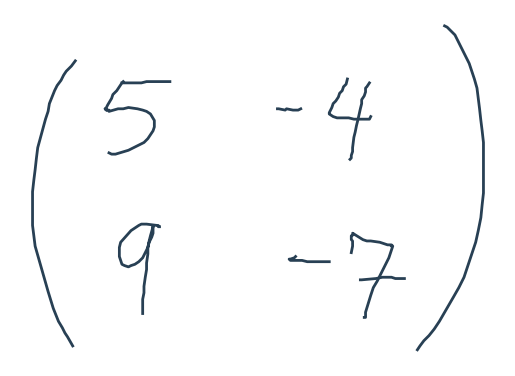 5 -4
9 -7